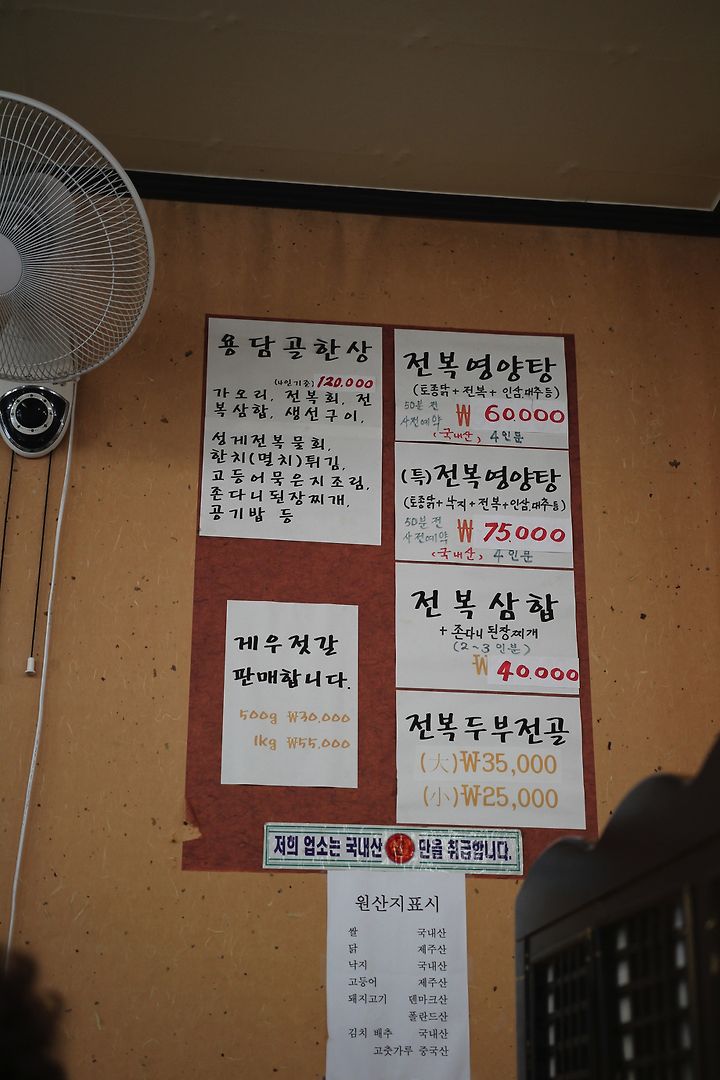 용담골한상
(4인기준) 120.000
가오리, 전복회, 전
복삼합, 생선구이,
성게전복물회,
한치(멸치)튀김,
고등어묵은지조림,
존다니된장찌개,
공기밥 등
게우젓갈
판매합니다.
500g ₩30.000
1kg ₩55.000
전복영양탕
(토종닭+전복+인삼,대추등)
50분 전
사전예약
₩ 60.000
(국내산) 4인분
(특)전복영양탕
(토종닭+낙지+전복+인삼,대추등)
50분전
사전예약
₩ 75.000
(국내산) 4인분
전복삼합
+ 존다니된장찌개
(2~3인분)
₩ 40.000
전복두부전골
(大)₩35,000
(小)₩25,000
저희 업소는 국내산 만을 취급합니다.
원산지표시
쌀 국내산
닭 제주산
낙지 국내산
고등어 제주산
돼지고기 덴마크산
폴란드산
김치 배추 국내산
고춧가루 중국산